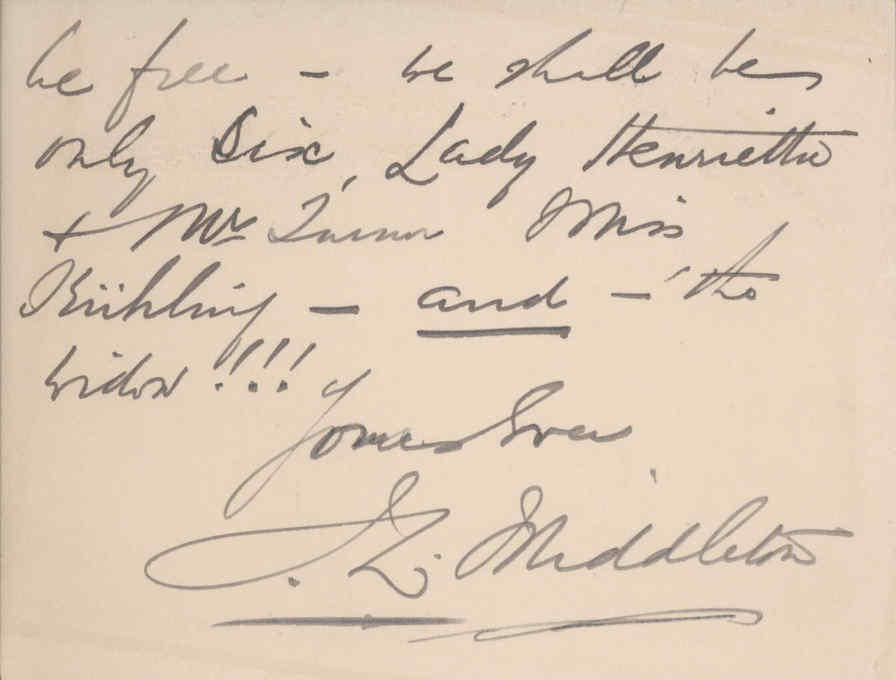 be free – we shall be
only Six, Lady Henrietta
+ Mr Turnor Miss
Kühling – and – the
widow!!!
Yours Ever
J. Z. Middleton